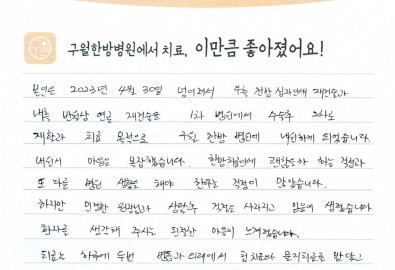 구월한방병원에서 치료, 이만큼 좋아졌어요!
본인은 2023년 4월 30일 넘어져서 우측 전방 십자인대 재건술과
내측 반월상 연골 재건술을 1차 병원에서 수술후 2차로
재활과 치료 목적으로 구월 한방 병원에 내원하게 되었습니다.
내원시 마음은 복잡했습니다. 한방병원에 괜찮을까 하는 걱정과
또 다른 병원 생활을 해야 한다는 걱정이 많았습니다.
하지만 원장님과 상담후 걱정은 사라지고 믿음이 생겼습니다.
환자를 생각해 주시는 친절한 마음이 느껴졌습니다.
치료는 하루에 두번 병동과 외래에서 침치료와 물리치료를 받았고